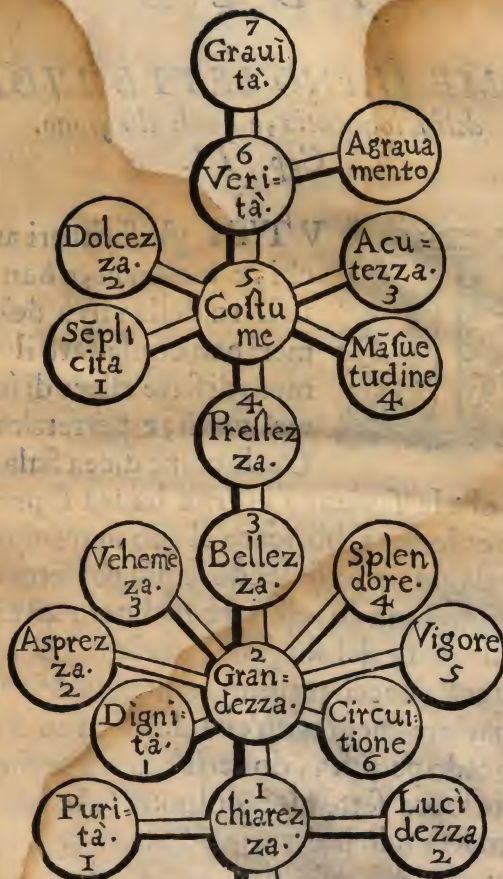 7
Grauì
tà.
6
Veri=
tà.
Agraua
mento
Dolcez
za.
2
Acu=
tezza.
3
5
Coſtu
me
Sẽpli
cita
1
Mãſue
tudine
4
4
Preſtez
za.
3
Bellez
za.
Vehemẽ
za.
3
Splen
dore.
4
Aſprez
za.
2
2
Gran=
dezza.
Vigore
5
Digni=
tà.
1
Circui=
tione
6
Puri=
tà.
1
1
chiarez
za.
Lucì
dezza
2